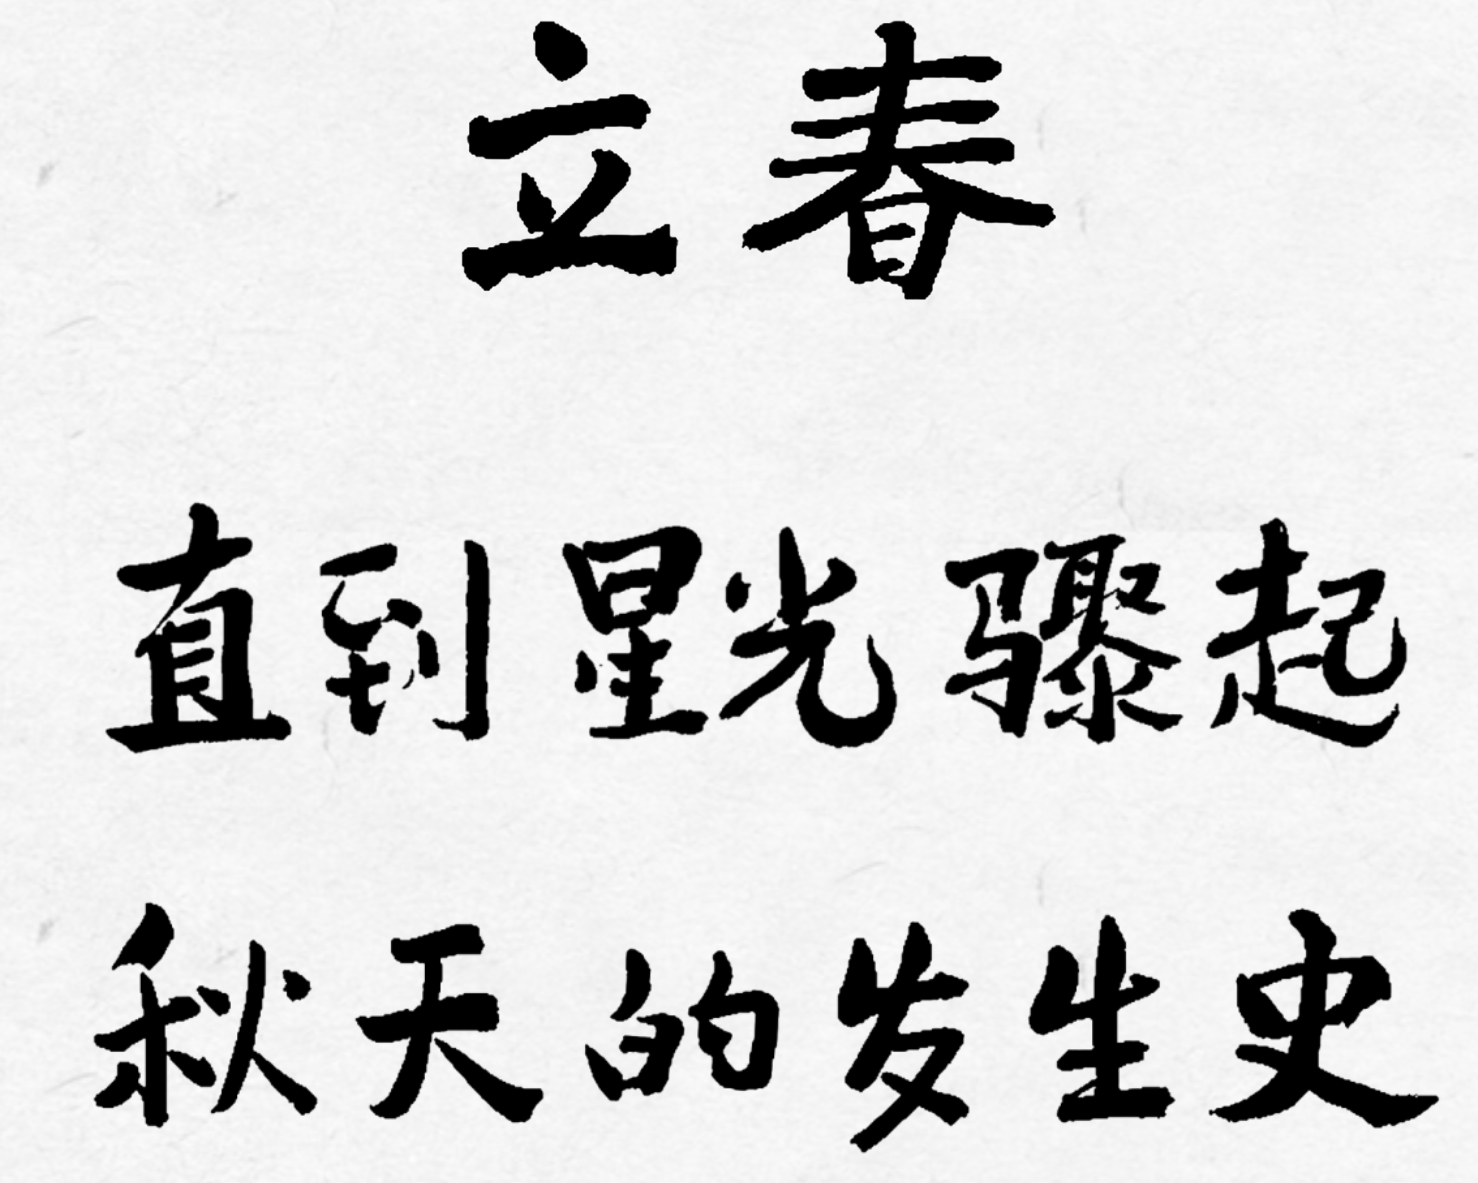 立春
直到星光骤起
秋天的发生史